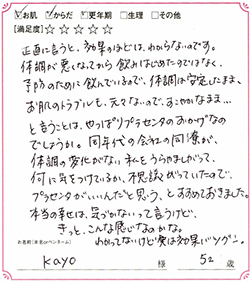 ☑お肌 ☑からだ ☑更年期 □生理 □その他
[満足度]☆☆☆☆☆
正直に言うと、効果のほどは、わからないのです。
体調が悪くなってから飲みはじめたのではなく、
予防のために飲んでいるので、体調は安定したまま、
お肌のトラブルも、元々ないので、すこやかなまま…
と言うことは、やっぱりプラセンタのおかげなの
でしょうか。同年代の会社の同僚が、
体調の変化がない私をうらやましがって、
何に気をつけているか、不思議がっていたので、
プラセンタがいいんだと思う、とすすめておきました。
本当の幸せは、気づかないって言うけど、
きっと、こんな感じなのかな。
わかってないけど実は効果バツグン。
お名前(本名orペンネーム)
kayo 様 52 歳